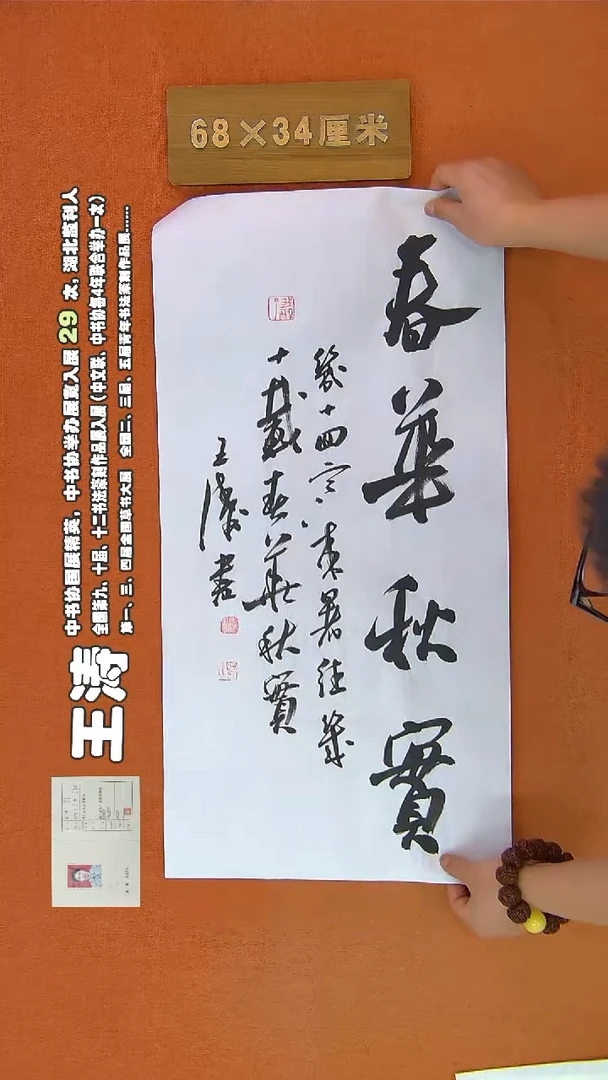 68×34厘米
春華秋實
十四寒来暑往幾
十載春華秋實
王涛書
王涛
中书协国展精英，中书协举办展赛入展 29 次，湖北监利人
全国第九、十届、十二书法篆刻作品展入展（中文联、中书协每4年联合举办一次）
第一、三、四届全国草书大展 全国二、三届、五届青年书法篆刻作品展......